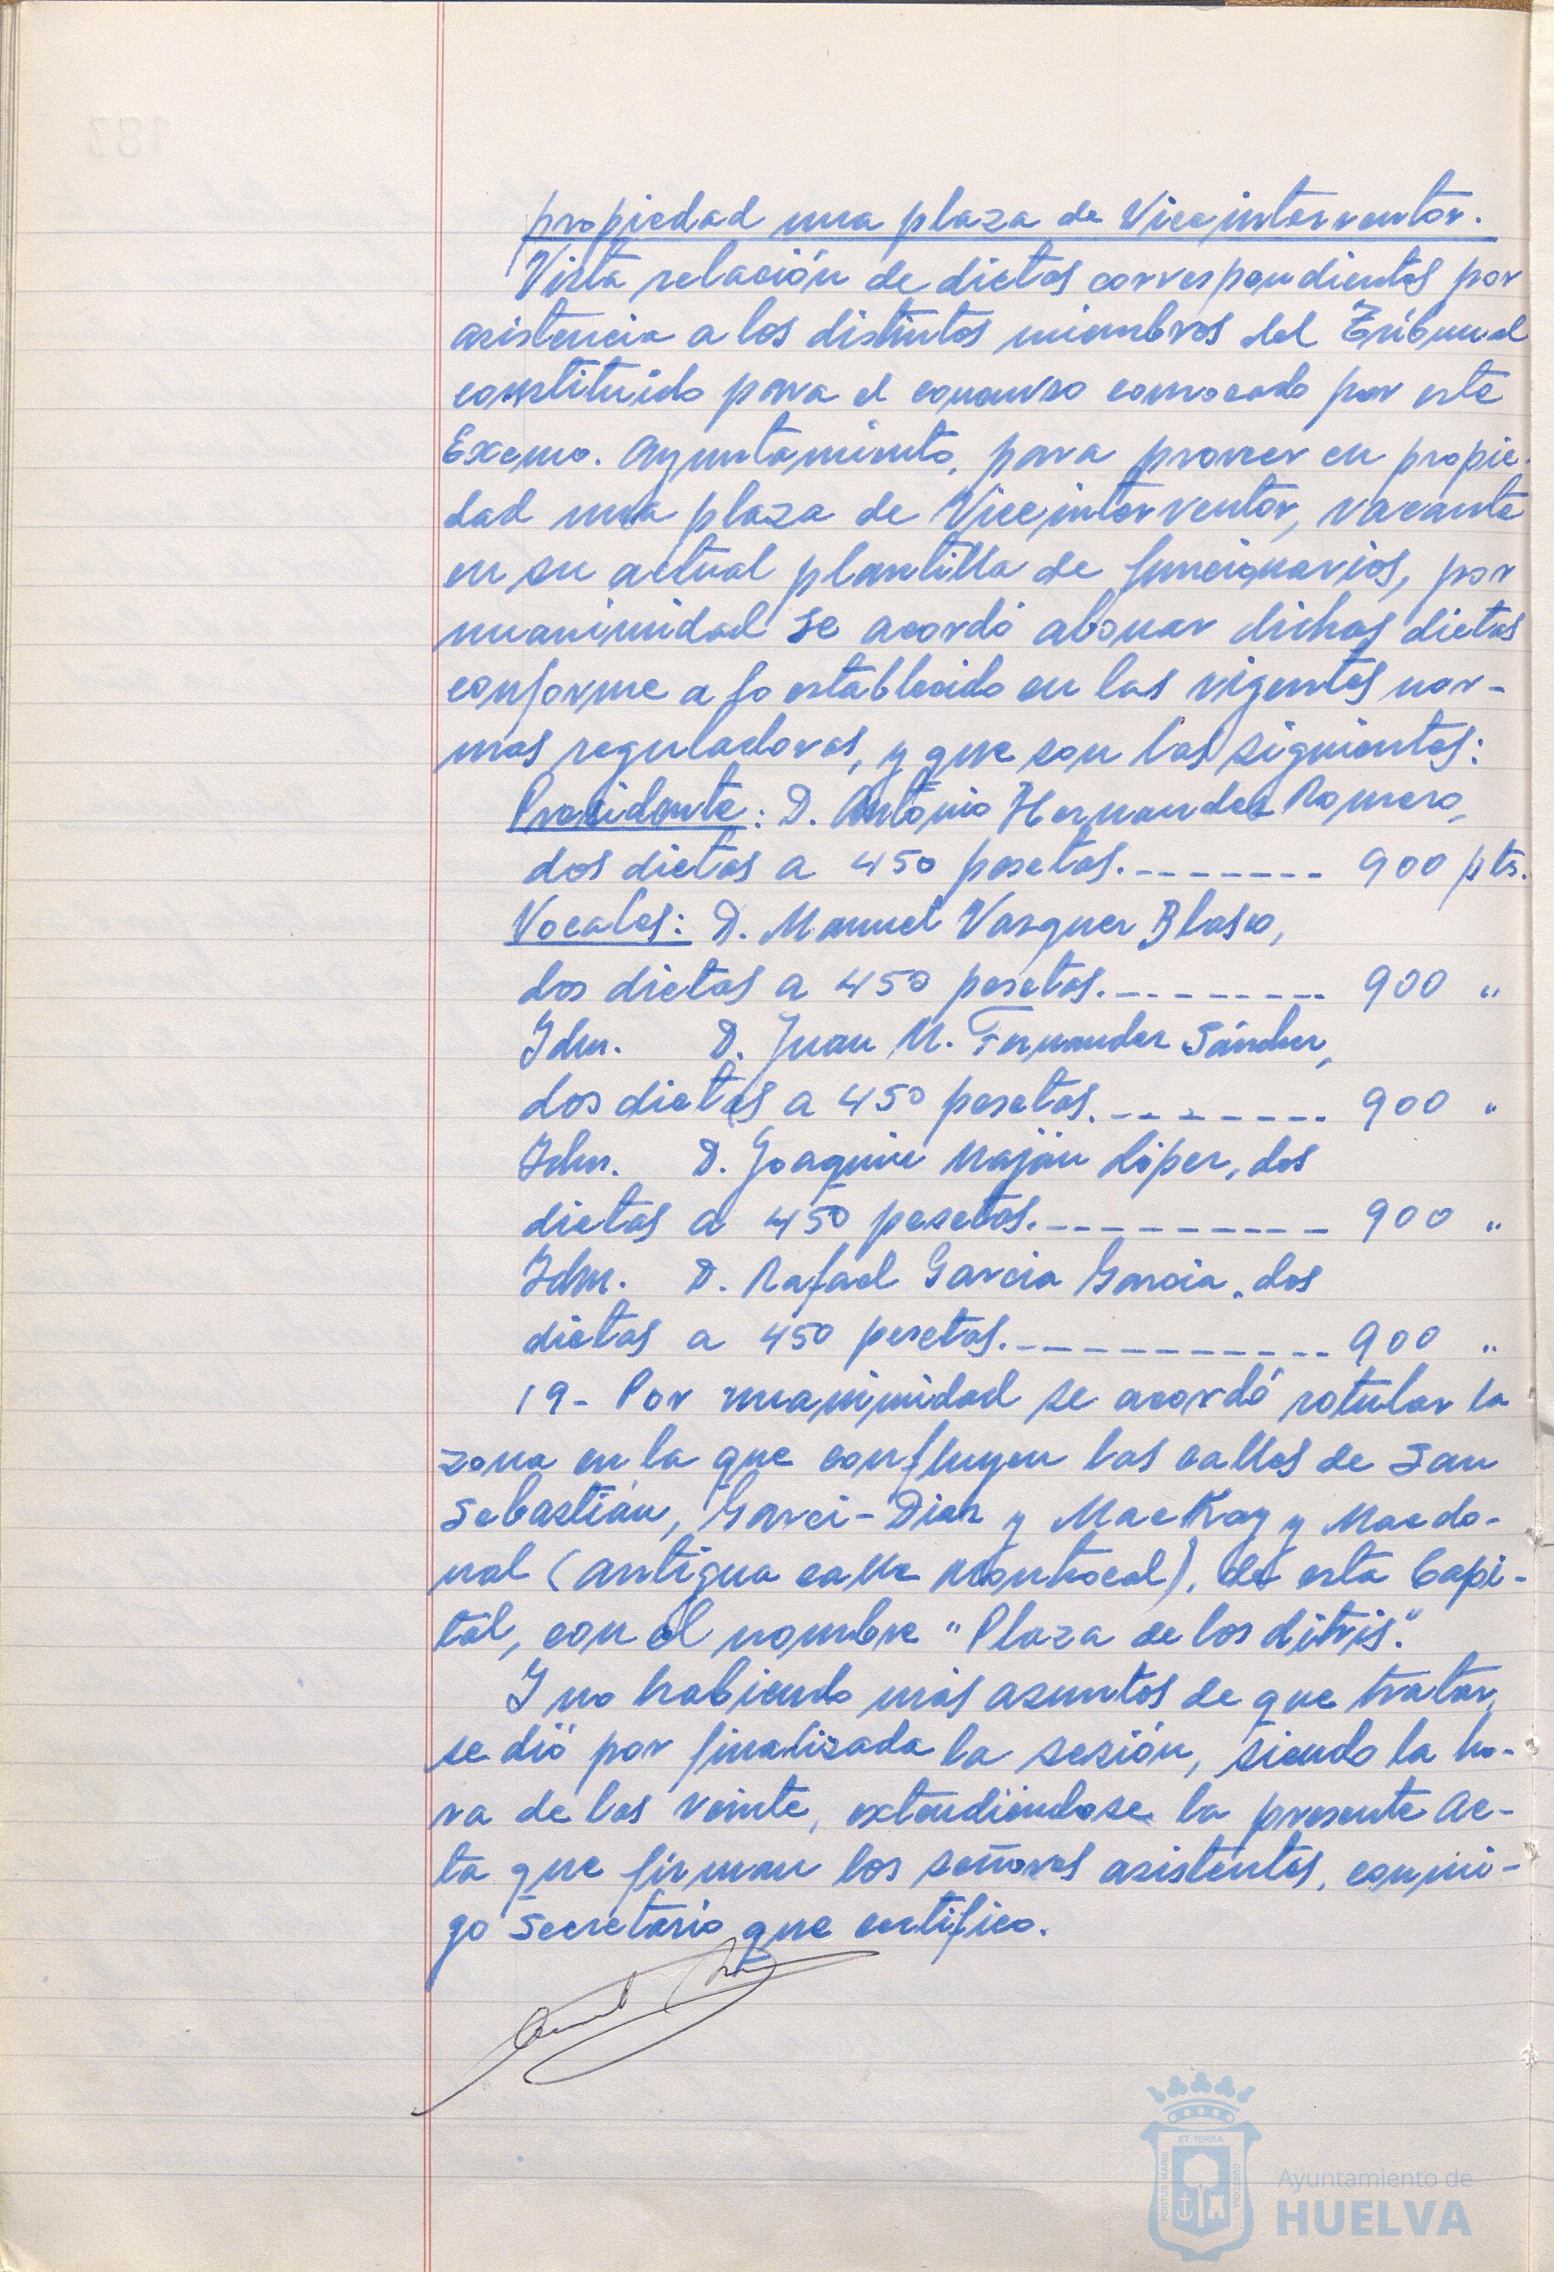 propiedad una plaza de Viceinterventor.
Vista relación de dietas correspondientes por
asistencia a los distintos miembros del Tribunal
constituido para el concurso convocado por este
Excmo. Ayuntamiento, para proveer en propie-
dad una plaza de Viceinterventor, vacante
en su actual plantilla de funcionarios, por
unanimidad se acordó abonar dichas dietas
conforme a lo establecido en las vigentes nor-
mas reguladoras, y que son las siguientes:
Presidente: D. Antonio Hernandez Romero,
dos dietas a 450 pesetas. -------- 900 pts.
Vocales: D. Manuel Vazquez Blasco,
dos dietas a 450 pesetas. --------- 900 "
Idm. D. Juan M. Fernandez Sánchez,
dos dietas a 450 pesetas. -------- 900 "
Idm. D. Joaquin López, dos
dietas a 450 pesetas. ---------- 900 "
Idm. D. Rafael Garcia Garcia, dos
dietas a 450 pesetas. ------------ 900 "
19- Por unanimidad se acordó rotular la
zona en la que confluyen las calles de San
Sebastián, Garci-Diez y MacKay y Macdo-
nal (antigua calle Montrocal), de esta Capi-
tal, con el nombre "Plaza de los ".
Y no habiendo más asuntos de que tratar,
se dió por finalizada la sesión, siendo la ho-
ra de las veinte, extendiéndose la presente ac-
ta que firman los señores asistentes, conmi-
go Secretario que certifico.
PORTUS MARIS
ET TERRÆ
CUSTODIA
Ayuntamiento de
HUELVA